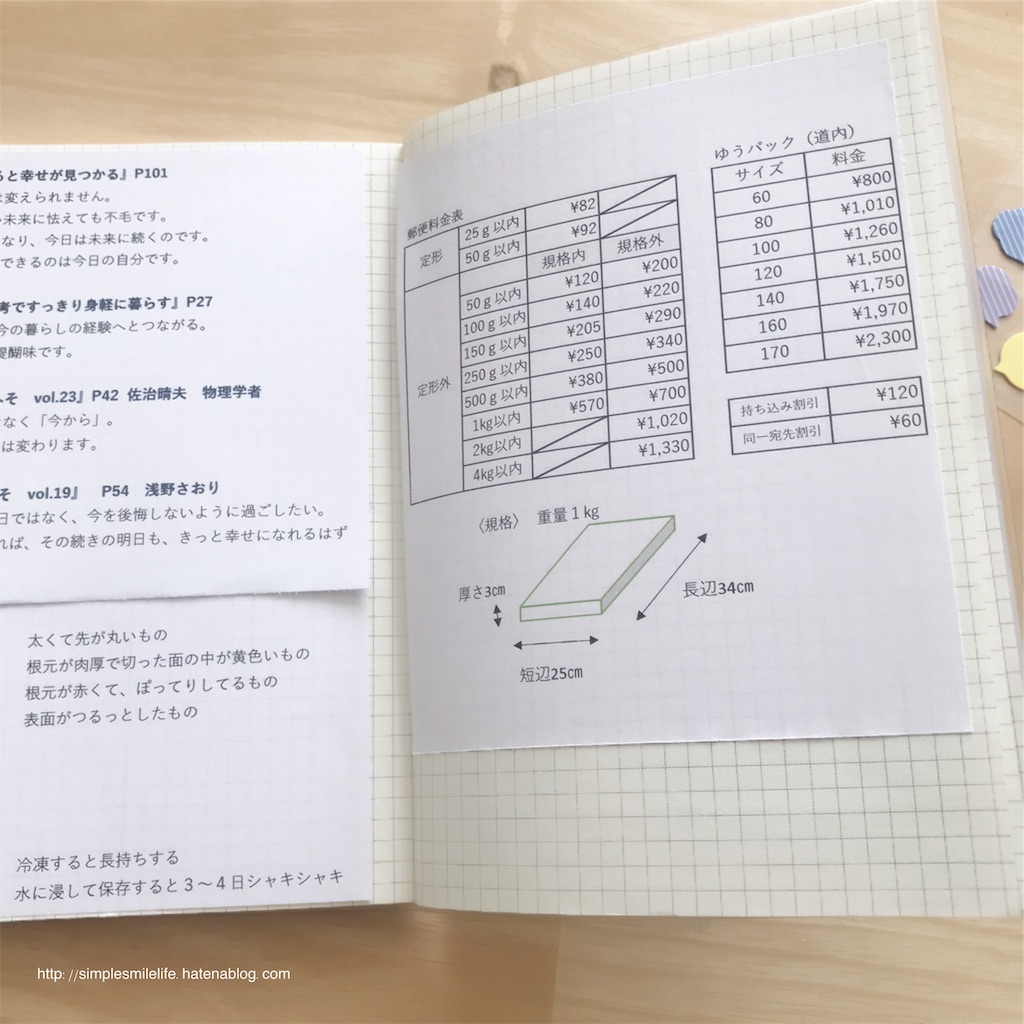 ると幸せが見つかる』P101
は変えられません。
未来に怯えても不毛です。
なり、今日は未来に続くのです。
できるのは今日の自分です。
考ですっきり身軽に暮らす』P27
今の暮らしの経験へとつながる。
醍醐味です。
そ vol.23』P42 佐治晴夫 物理学者
なく「今から」。
は変わります。
そ vol.19』 P54 浅野さおり
日ではなく、今を後悔しないように過ごしたい。
れば、その続きの明日も、きっと幸せになれるはず
太くて先が丸いもの
根元が肉厚で切った面の中が黄色いもの
根元が赤くて、ぽってりしてるもの
表面がつるっとしたもの
冷凍すると長持ちする
水に浸して保存すると3～4日シャキシャキ
郵便料金表
定形 25g以内 ¥82
50g以内 ¥92
規格内 規格外
定形外 50g以内 ¥120 ¥200
100g以内 ¥140 ¥220
150g以内 ¥205 ¥290
250g以内 ¥250 ¥340
500g以内 ¥380 ¥500
1kg以内 ¥570 ¥700
2kg以内 ¥1,020
4kg以内 ¥1,330
ゆうパック（道内）
サイズ 料金
60 ¥800
80 ¥1,010
100 ¥1,260
120 ¥1,500
140 ¥1,750
160 ¥1,970
170 ¥2,300
持ち込み割引 ¥120
同一宛先割引 ¥60
〈規格〉 重量1kg
厚さ3㎝
長辺34㎝
短辺25㎝
http://simplesmilelife.hatenablog.com